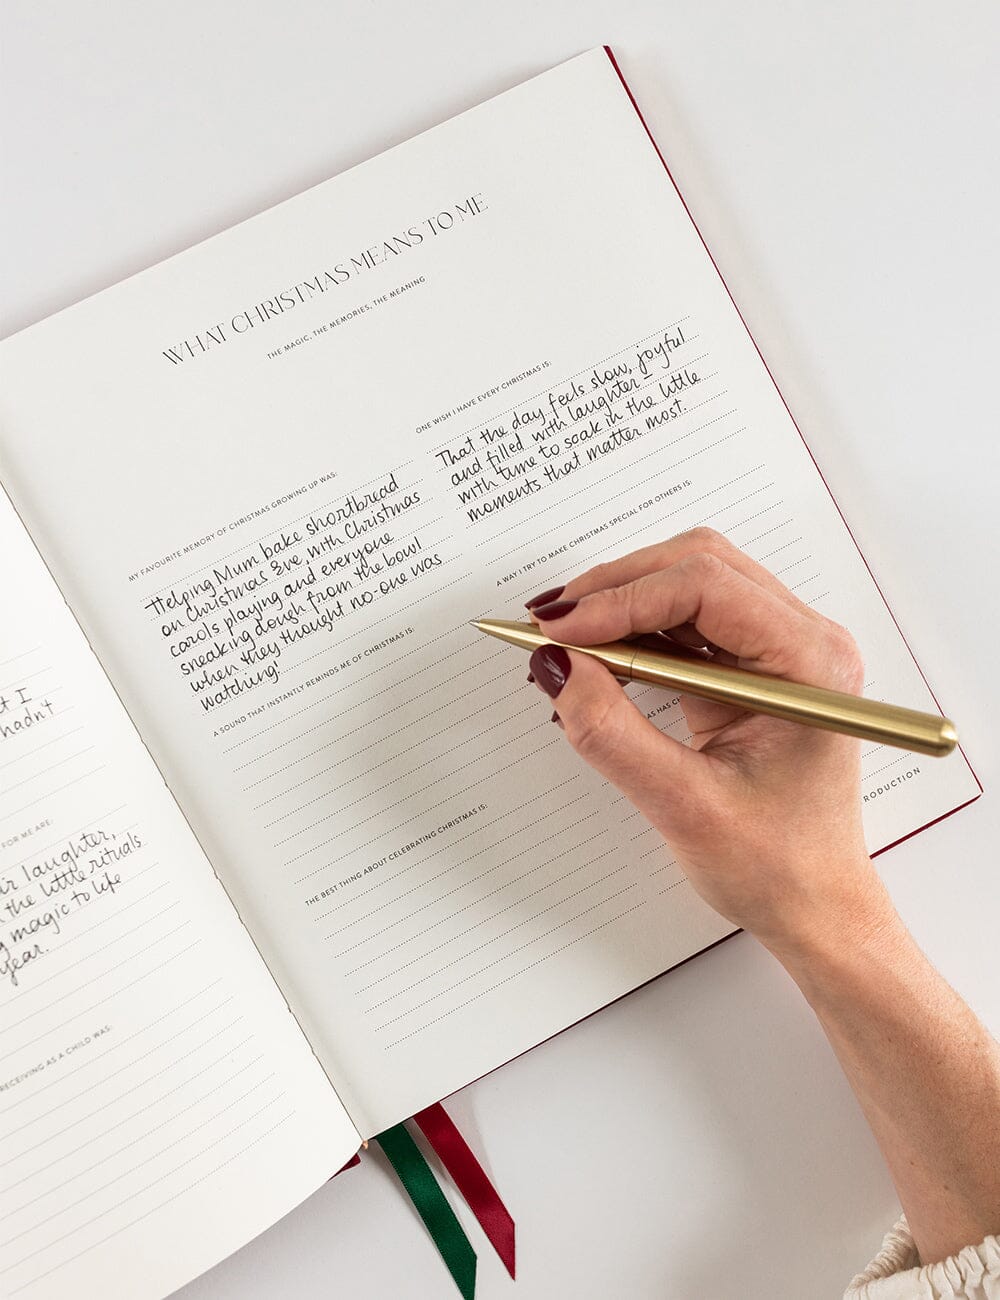 t I
hadn't
FOR ME ARE:
laughter,
the little rituals
magic to life
year.
RECEIVING AS A CHILD WAS:
WHAT CHRISTMAS MEANS TO ME
THE MAGIC, THE MEMORIES, THE MEANING
MY FAVOURITE MEMORY OF CHRISTMAS GROWING UP WAS:
Helping Mum bake shortbread
on Christmas Eve with Christmas
carols playing and everyone
sneaking dough from the bowl
when they thought no-one was
watching!
A SOUND THAT INSTANTLY REMINDS ME OF CHRISTMAS IS:
THE BEST THING ABOUT CELEBRATING CHRISTMAS IS:
ONE WISH I HAVE EVERY CHRISTMAS IS:
That the day feels slow, joyful
and filled with laughter –
with time to soak in the little
moments that matter most.
A WAY I TRY TO MAKE CHRISTMAS SPECIAL FOR OTHERS IS:
AS HAS CH
RODUCTION